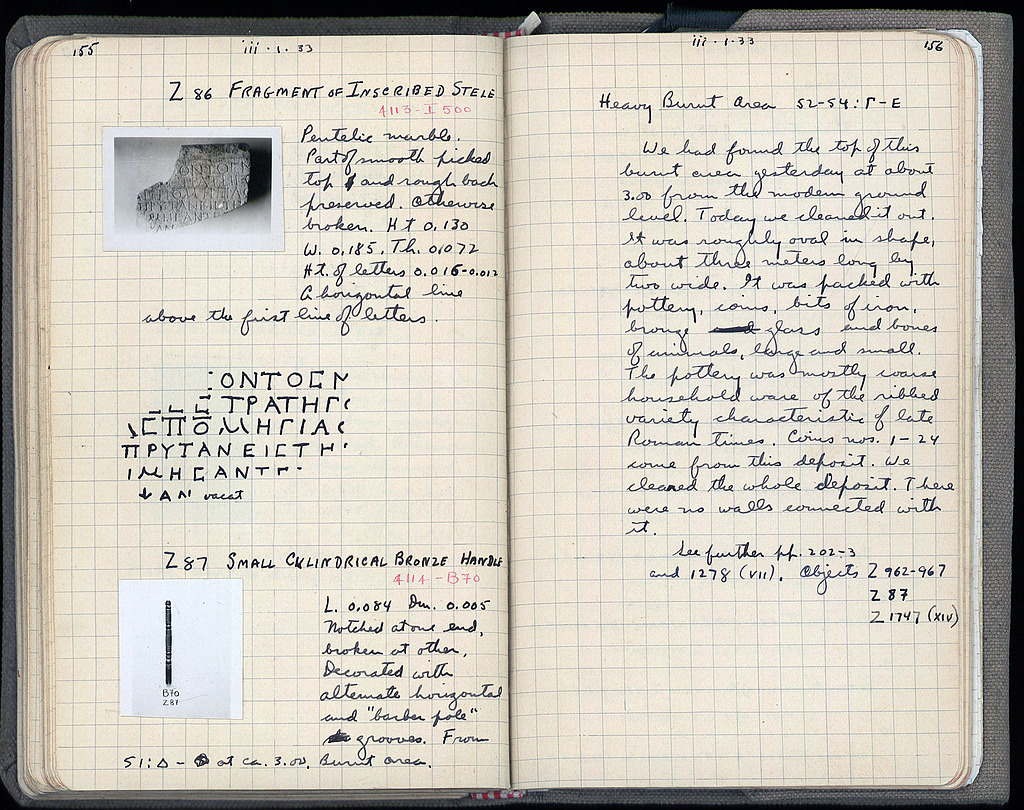 155
iii · 1 · 33
Z 86 FRAGMENT OF INSCRIBED STELE
4113-I 500
Pentelic marble.
Part of smooth picked
top and rough back
preserved. Otherwise
broken. Ht 0.130
W. 0.185. Th. 0.072
Ht. of letters 0.016-0.012
A horizontal line
above the first line of letters.
ΟΝΤΟΣ
ΤΡΑΤΗΓ
ΠΟ ΗΓΙΑ
ΠΡΥΤΑΝΕΙΣΤΗ
ΗΣΑΝΤ
ΑΝ vacat
Z 87 SMALL CYLINDRICAL BRONZE HANDLE
4114-B70
L. 0.084 Dm. 0.005
Notched at one end,
broken at other,
Decorated with
alternate horizontal
and "barber pole"
grooves. From
51:Δ - at ca. 3.00. Burnt area.
B70
Z87
iii · 1 · 33
156
Heavy Burnt Area 52-54: Γ-Ε
We had found the top of this
burnt area yesterday at about
3.00 from the modern ground
level. Today we cleaned it out.
It was roughly oval in shape,
about three meters long by
two wide. It was packed with
pottery, coins, bits of iron,
bronze glass and bones
of animals, large and small.
The pottery was mostly coarse
household ware of the ribbed
variety characteristic of late
Roman times. Coins nos. 1-24
come from this deposit. We
cleaned the whole deposit. There
were no walls connected with
it.
See further pp. 202-3
and 1278 (VII). Objects Z 962-967
Z 87
Z 1747 (XIV)